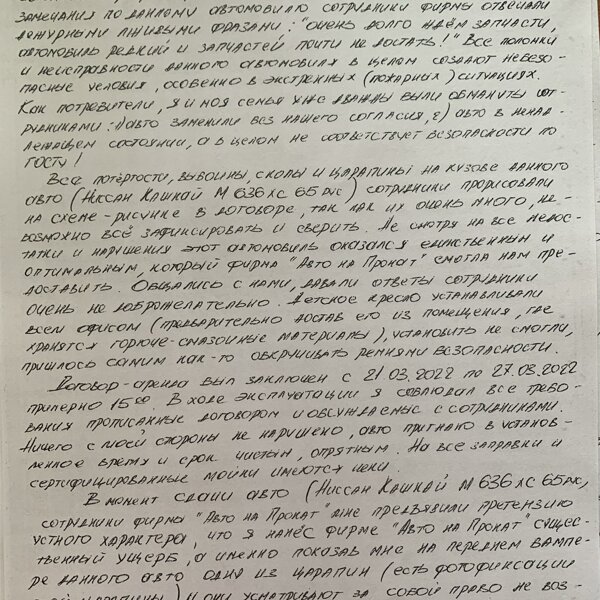 замечания по данному автомобилю сотрудники фирмы отвечали
дежурными лживыми фразами: "очень долго ждём запчасти,
автомобиль редкий и запчастей почти не достать!" Все поломки
и неисправности данного автомобиля в целом создают небезо-
пасные условия, особенно в экстренных (пожарных) ситуациях.
Как потребители, я и моя семья уже дважды были обмануты сот-
рудниками: 1) авто заменили без нашего согласия, 2) авто в нена-
длежащем состоянии, а в целом не соответствует безопасности по
ГОСТу!
Все потёртости, выбоины, сколы и царапины на кузове данного
авто (Ниссан Кашкай М 636 ХС 65 рус) сотрудники прорисовали
на схеме-рисунке в договоре, так как их очень много, не-
возможно всё зафиксировать и сверить. Не смотря на все недос-
татки и нарушения этот автомобиль оказался единственным и
оптимальным, который фирма "Авто на Прокат" смогла нам пре-
доставить. Общались с нами, давали ответы сотрудники
очень не доброжелательно. Детское кресло устанавливали
всем офисом (предварительно достав его из помещения, где
хранятся горюче-смазочные материалы), установить не смогли,
пришлось самим как-то обкручивать ремнями безопасности.
Договор-аренда был заключен с 21.03.2022 по 27.03.2022
примерно 15:00. В ходе эксплуатации я соблюдал все требо-
вания прописанные договором и обсуждаемые с сотрудниками.
Ничего с моей стороны не нарушено, авто пригнано в установ-
ленное время и срок чистым, опрятным. На все заправки и
сертифицированные мойки имеются чеки.
В момент сдачи авто (Ниссан Кашкай М 636 ХС 65 рус,
сотрудники фирмы "Авто на Прокат" мне предъявили претензию
устного характера, что я нанёс фирме "Авто на Прокат" сущес-
твенный ущерб, а именно показав мне на переднем бампе-
ре данного авто одна из царапин (есть фотофиксации
царапины) и они усматривают за собой право не воз-